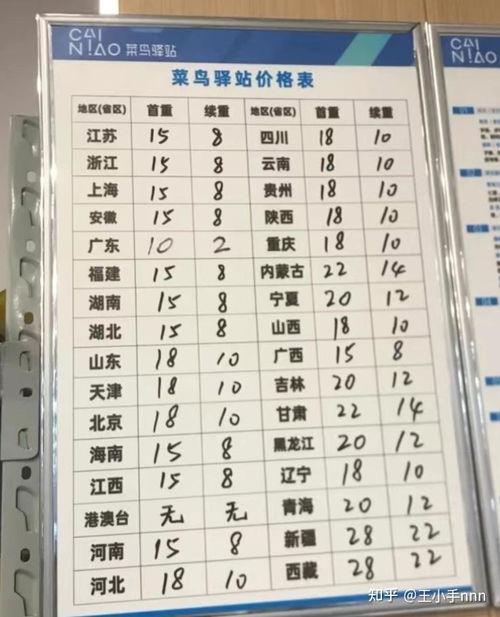 CAI
NIAO 菜鸟驿站
菜鸟驿站价格表
地区(省区) 首重 续重 地区(省区) 首重 续重
江苏 15 8 四川 18 10
浙江 15 8 云南 18 10
上海 15 8 贵州 18 10
安徽 15 8 陕西 18 10
广东 10 2 重庆 18 10
福建 15 8 内蒙古 22 14
湖南 15 8 宁夏 20 12
湖北 15 8 山西 18 10
山东 18 10 广西 15 8
天津 18 10 吉林 20 12
北京 18 10 甘肃 22 14
海南 15 8 黑龙江 20 12
江西 15 8 辽宁 18 10
港澳台 无 无 青海 20 12
河南 15 8 新疆 28 22
河北 18 10 西藏 28 22
CAI
NIAO
知乎 @王小手nnn